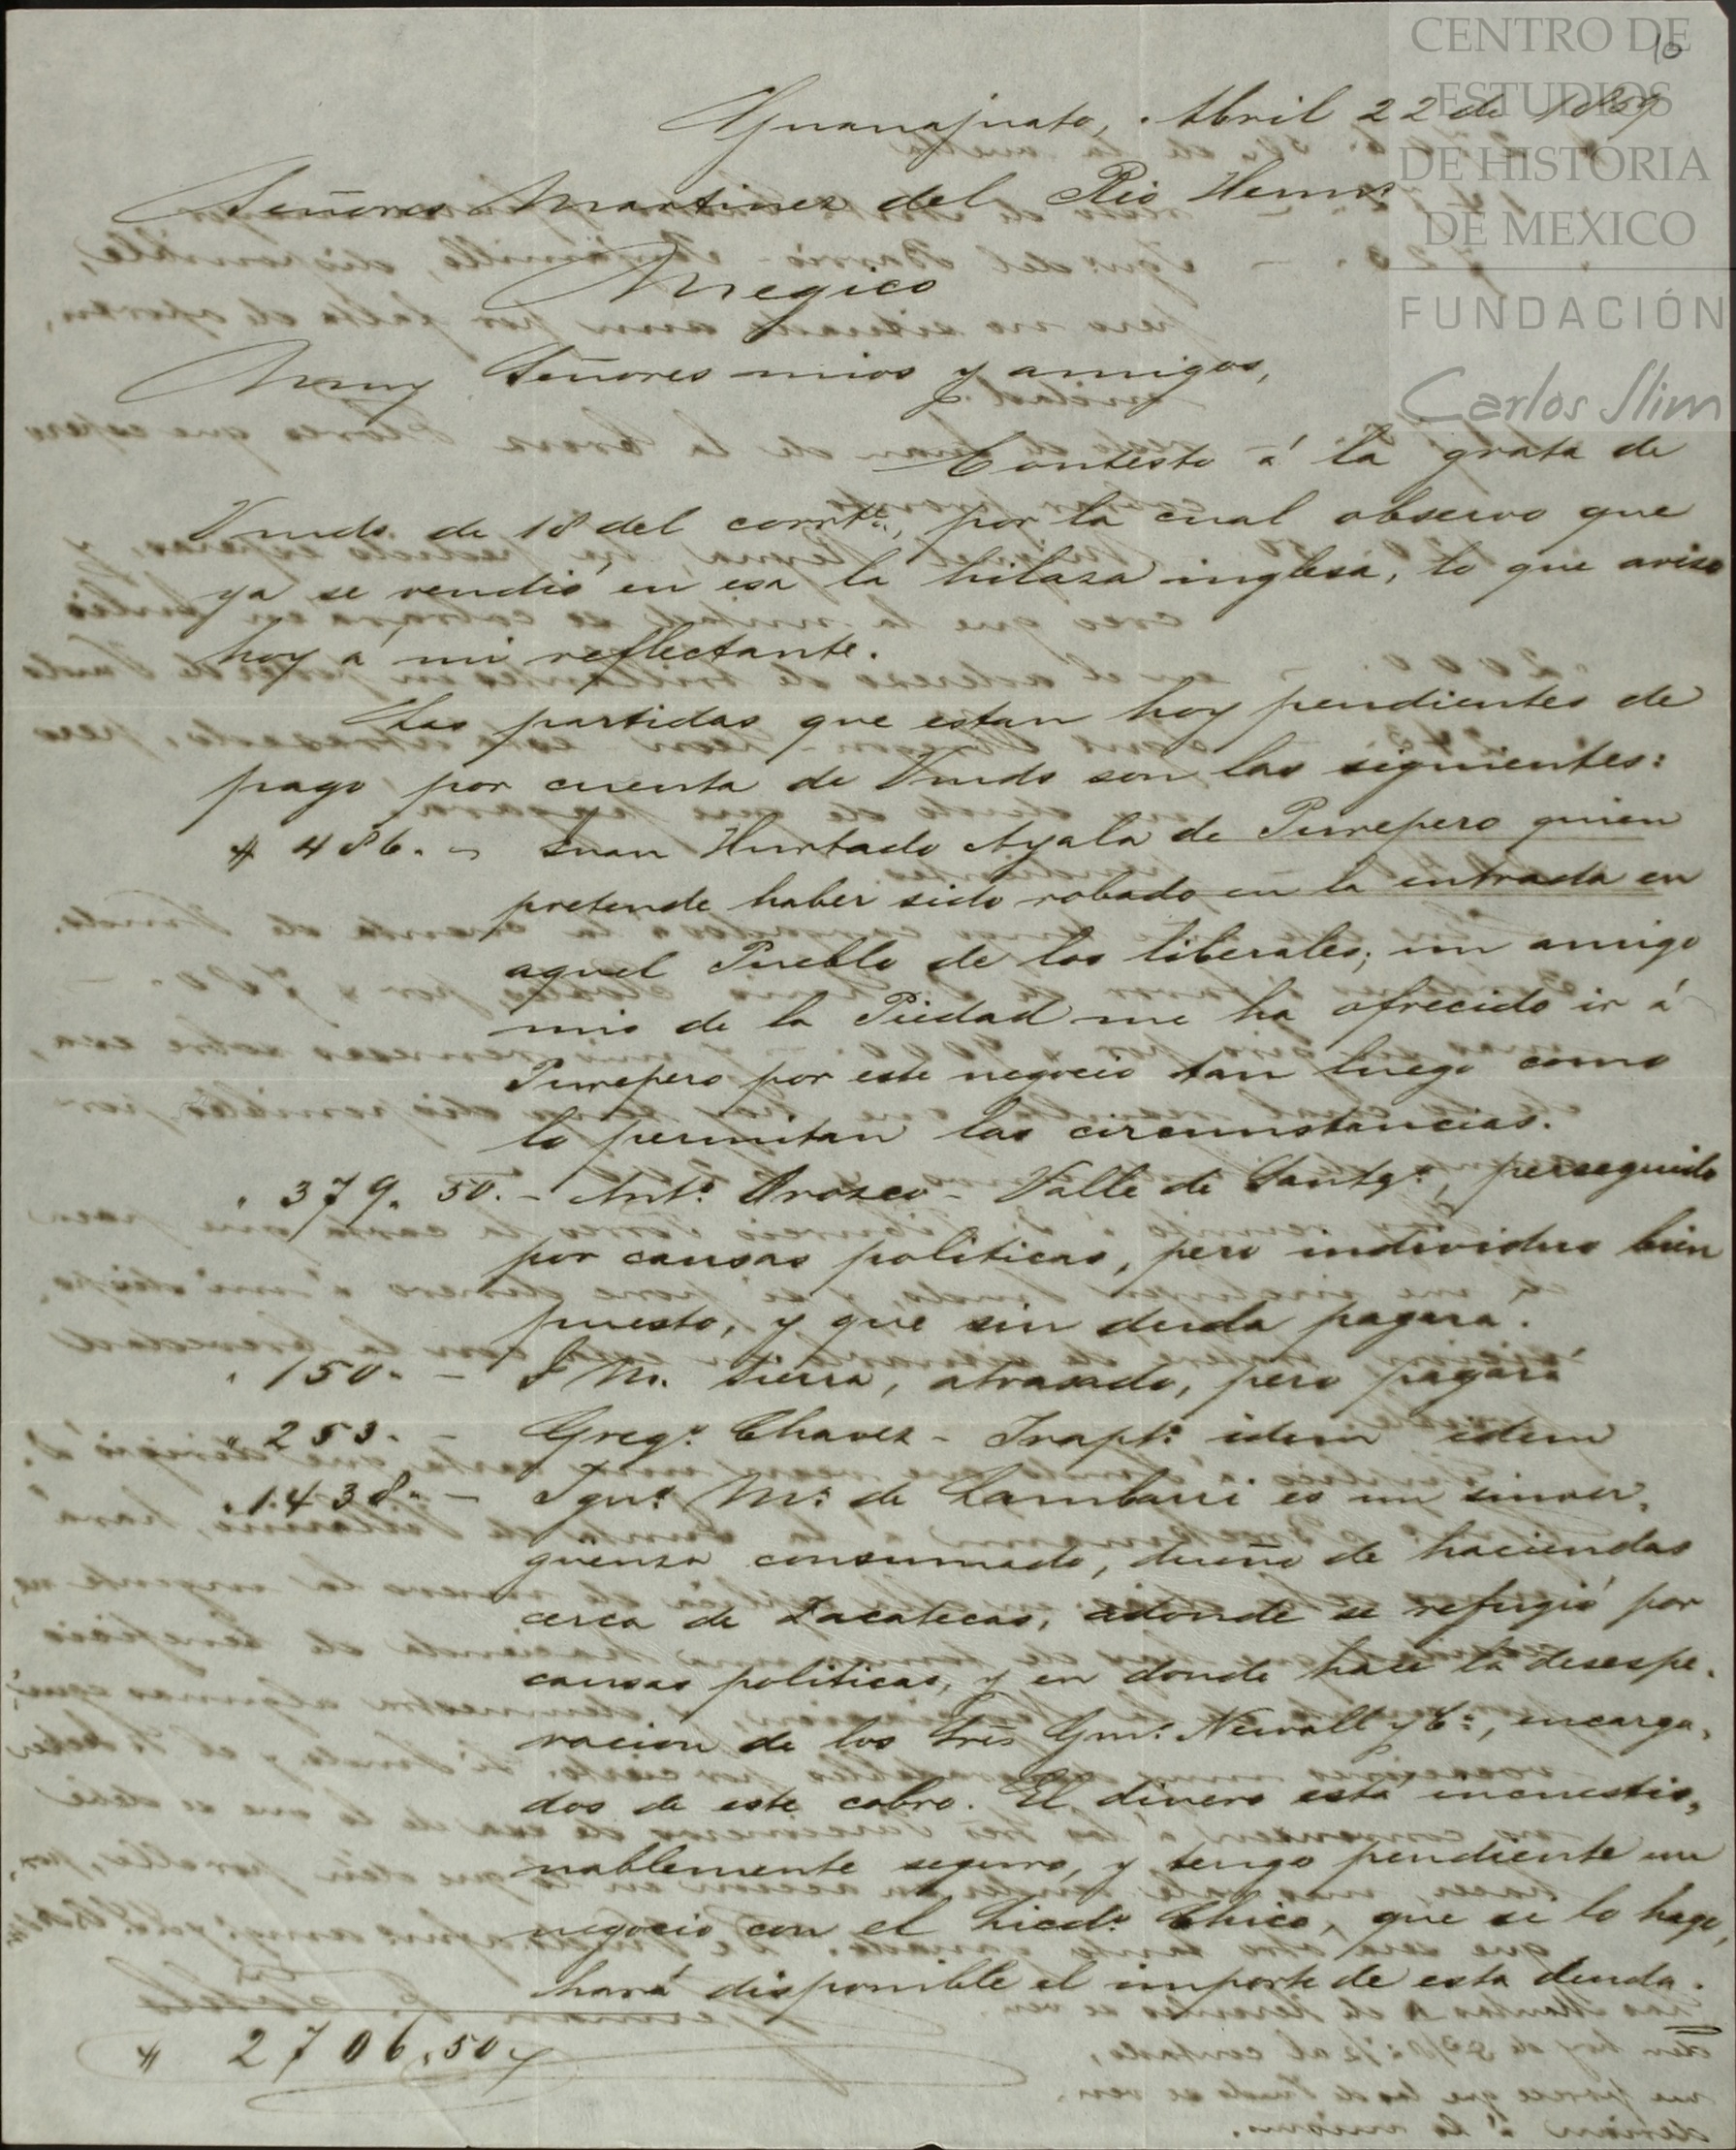 10
CENTRO DE
ESTUDIOS
DE HISTORIA
DE MEXICO
FUNDACIÓN
Carlos Slim
Guanajuato, Abril 22 de 1859
Señores Martinez del Rio Hermˢ
Megico
Muy Señores mios y amigos,
Contesto á la grata de
Vmds. de 18 del corrtᵉ., por la cual observo que
ya se vendió en esa la hilaza inglesa, lo que aviso
hoy á mi reflectante.
Las partidas que estan hoy pendientes de
pago por cuenta de Vmds son las siguientes:
$ 486. - Juan Hurtado Ayala de Purepero quien
pretende haber sido robado en la entrada en
aquel Pueblo de los liberales; un amigo
mio de la Piedad me ha ofrecido ir á
Purepero por este negocio tan luego como
lo permitan las circumstancias.
" 379. 50. - Antº. Orozco - Valle de Santgº, perseguido
por causas politicas, pero individuo bien
puesto, y que sin duda pagará.
" 150. - J M. Sierra, atrasado, pero pagará
" 253. - Gregº. Chavez - Iraptº. idem idem
" 1.438. - Ignº. Mª. de Lambarri es un sinver,
güenza consumado, dueño de haciendas
cerca de Zacatecas, adonde se refugió por
causas politicas, y en donde hace la desespe,
racion de los Srēs Gmº. Newall y Cª., encarga,
dos de este cobro. El dinero está incuestio,
nablemente seguro, y tengo pendiente un
negocio con el Licdº. Chico, que si lo hago,
hará disponible el importe de esta deuda.
$ 2706,50